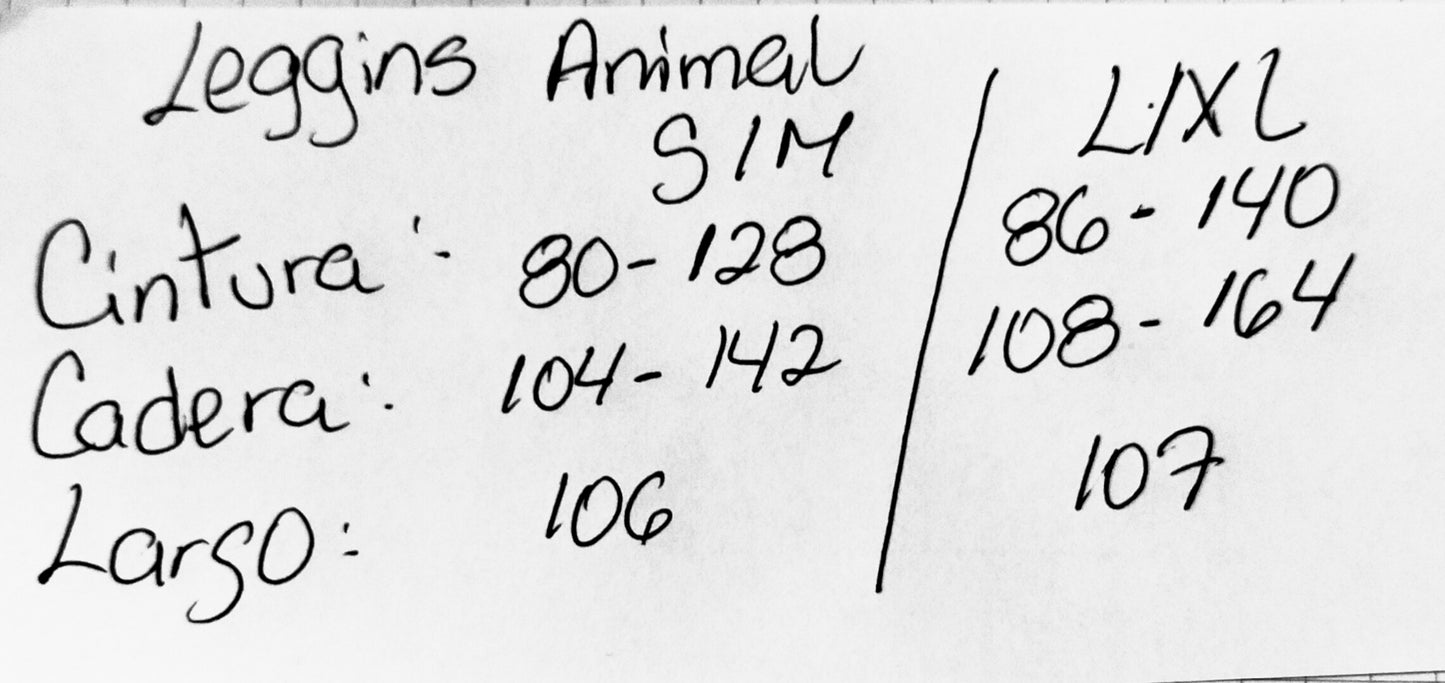 Leggins Animal
S/M | L/XL
Cintura:- 80-128 | 86-140
Cadera: 104-142 | 108-164
Largo: 106 | 107